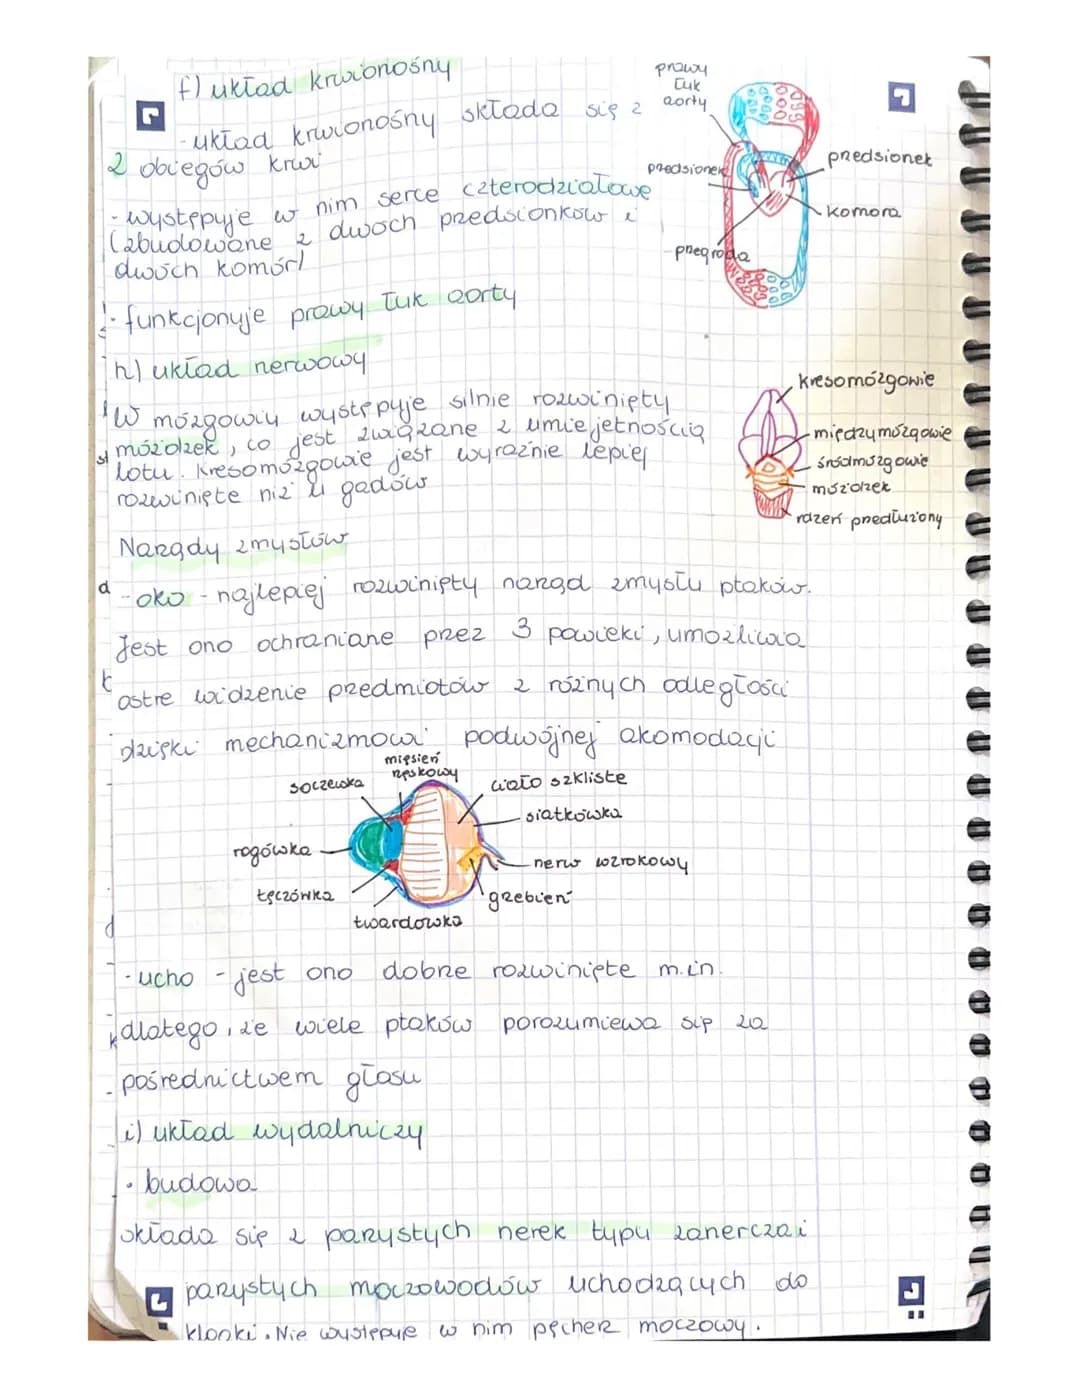 f) układ krwionośny
- układ krwionośny składa się z
2 obiegów krwi
- występuje w nim serce czterodziałowe
(zbudowane z dwóch przedsionków i
dwóch komór)
- funkcjonuje prawy łuk aorty
prawy
łuk
aorty
przedsionek
przedsionek
komora
przegroda
h) układ nerwowy
W mózgowiu występuje silnie rozwinięty
móżdżek, co jest związane z umiejętnością
lotu. Kresomózgowie jest wyraźnie lepiej
rozwinięte niż u gadów
kresomózgowie
międzymózgowie
śródmózgowie
móżdżek
rdzeń przedłużony
Narządy zmysłów
- oko - najlepiej rozwinięty narząd zmysłu ptaków.
Jest ono ochraniane przez 3 powieki, umożliwia
ostre widzenie przedmiotów z różnych odległości
dzięki mechanizmowi podwójnej akomodacji
soczewka
mięsień
rzęskowy
ciało szkliste
siatkówka
rogówka
nerw wzrokowy
tęczówka
grzebień
twardówka
- ucho - jest ono dobrze rozwinięte m.in.
dlatego, że wiele ptaków porozumiewa się za
pośrednictwem głosu
i) układ wydalniczy
• budowa
składa się z parzystych nerek typu zanercza i
parzystych moczowodów uchodzących do
kloaki. Nie występuje w nim pęcherz moczowy.